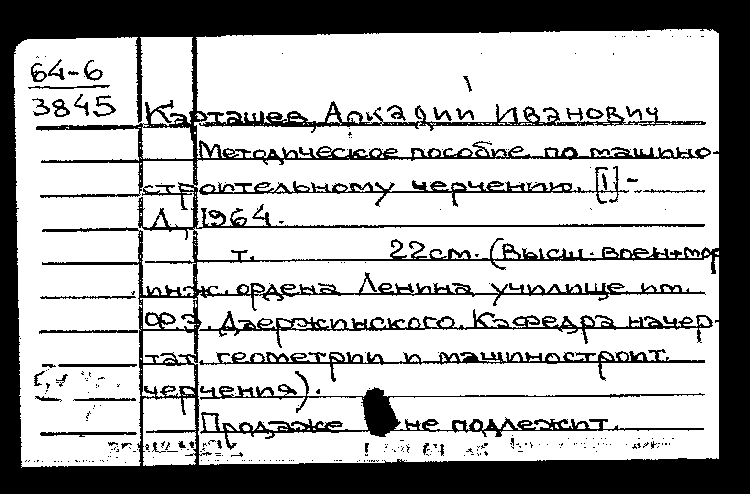 64-6
3845
Карташев, Аркадий Иванович
Методическое пособие по машино-
строительному черчению. [1]-
Л., 1964.
т. 22см. (Высш. воен-мор
инж. ордена Ленина училище им.
Ф.Э. Дзержинского. Кафедра начер-
тат. геометрии и машиностроит.
черчения).
Продаже не подлежит.